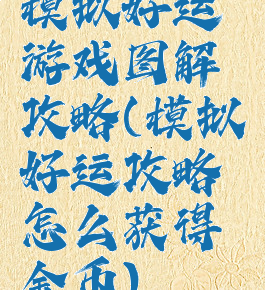 模拟好运
游戏图解
攻略(模拟
好运攻略
怎么获得
金币)